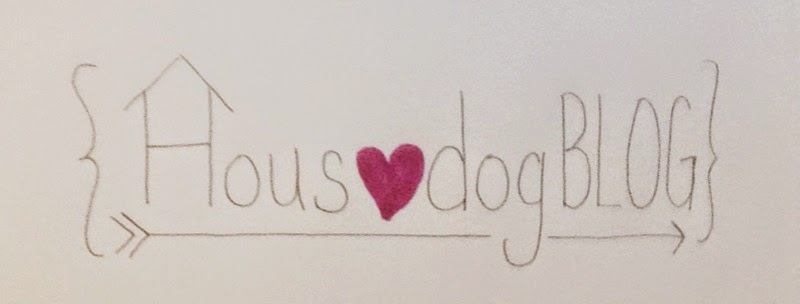 {Hous♥dogBLOG}